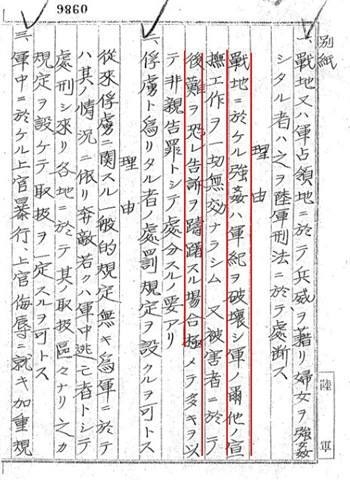 0986
別紙
一、戰地又ハ軍占領地ニ於テ兵威ヲ藉リ婦女ヲ強姦
シタル者ハ之ヲ陸軍刑法ニ於テ處断ス
理由
戰地ニ於ケル強姦ハ軍紀ヲ破壊シ軍ノ爾他ノ宣
撫工作ヲ一切無効ナラシム 又被害者ニ於テ
後難ヲ恐レ告訴ヲ躊躇スル場合極メテ多キヲ以
テ非親告罪トシテ處分スルノ要アリ
二、俘虜ト爲リタル者ノ處罰規定ヲ設クルヲ可トス
理由
從來俘虜ニ関スル一般的規定無キ爲軍ニ於テ
ハ其ノ情況ニ依リ奔敵若クハ軍中逃亡者トシテ
處刑シ來リ各地ニ於テ其ノ取扱區々ナリ之カ
規定ヲ設ケテ取扱ヲ一定スルヲ可トス
三、軍中ニ於ケル上官暴行、上官侮辱ニ就キ加重規
陸軍